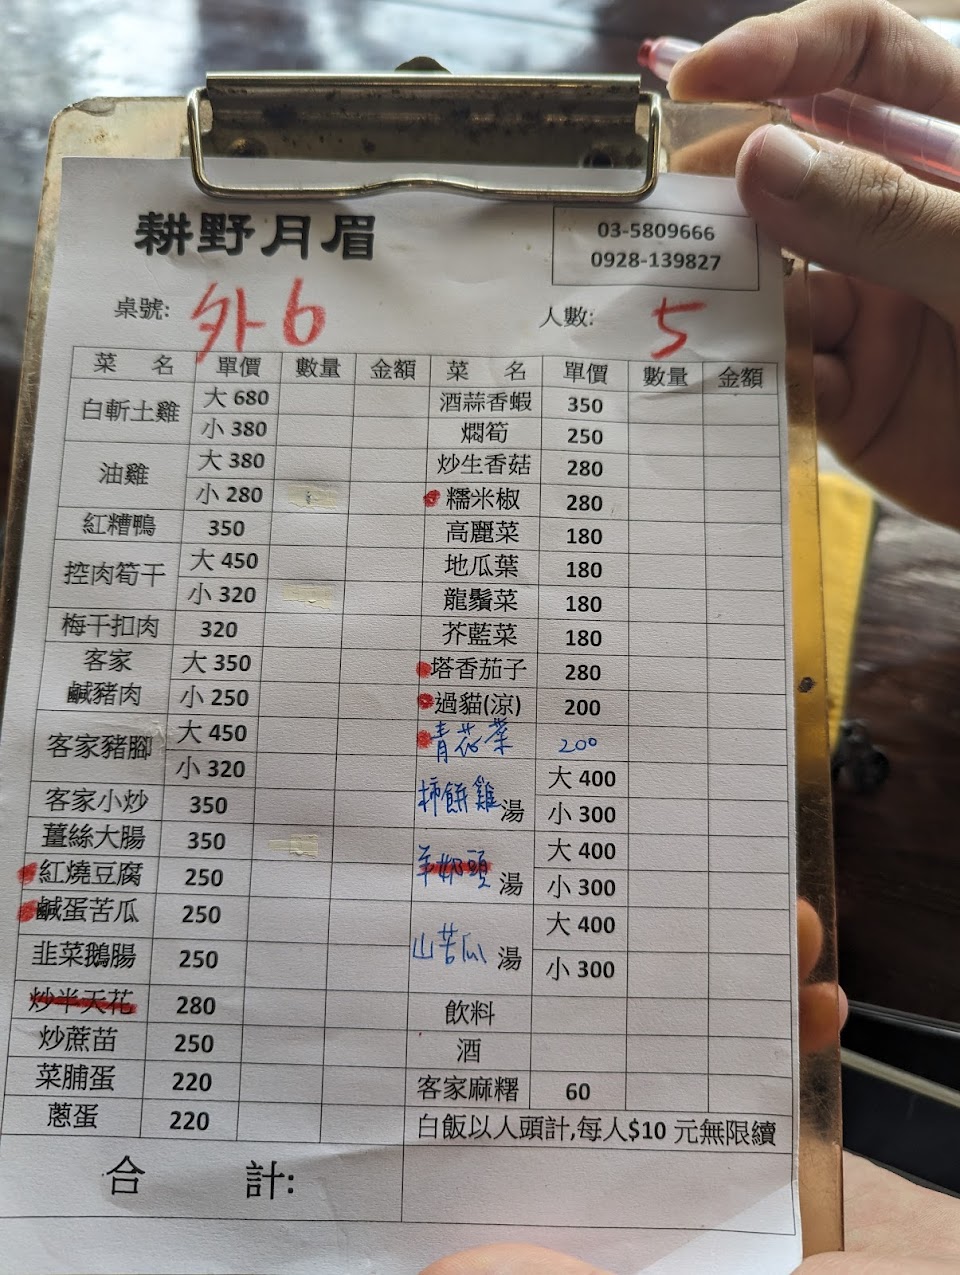 耕野月眉
03-5809666
0928-139827
桌號: 外6
人數: 5
菜 名 單價 數量 金額
白斬土雞 大 680
小 380
油雞 大 380
小 280
紅糟鴨 350
控肉筍干 大 450
小 320
梅干扣肉 320
客家鹹豬肉 大 350
小 250
客家豬腳 大 450
小 320
客家小炒 350
薑絲大腸 350
紅燒豆腐 250
鹹蛋苦瓜 250
韭菜鵝腸 250
炒半天花 280
炒蔗苗 250
菜脯蛋 220
蔥蛋 220
合 計:
菜 名 單價 數量 金額
酒蒜香蝦 350
燜筍 250
炒生香菇 280
糯米椒 280
高麗菜 180
地瓜葉 180
龍鬚菜 180
芥藍菜 180
塔香茄子 280
過貓(涼) 200
青花菜 200
柿餅雞湯 大 400
小 300
羊奶頭湯 大 400
小 300
山苦瓜湯 大 400
小 300
飲料
酒
客家麻糬 60
白飯以人頭計,每人$10 元無限續